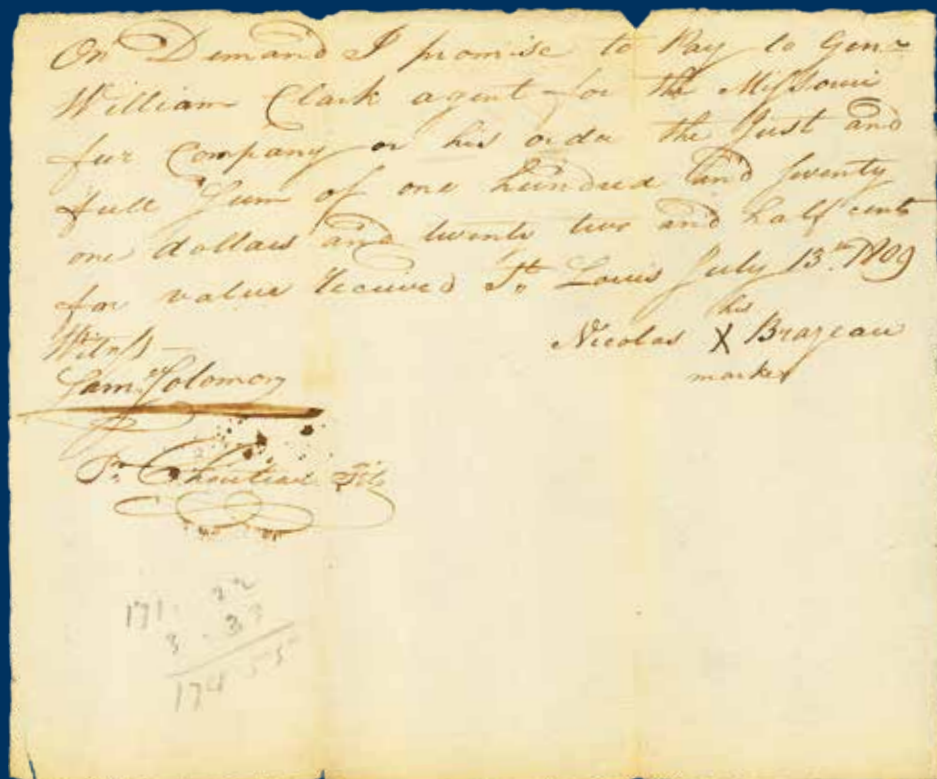 On Demand I promise to Pay to Genl
William Clark agent for the Missouri
fur Company or his order the Just and
full Sum of one hundred and Seventy
one dollars and twenty two and half cents
for value Received St. Louis July 13th 1809
his
Nicolas X Brazeau
marke
Witness
Saml Solomon
Pr. Chouteau Fils
171.22
3.33
174 55